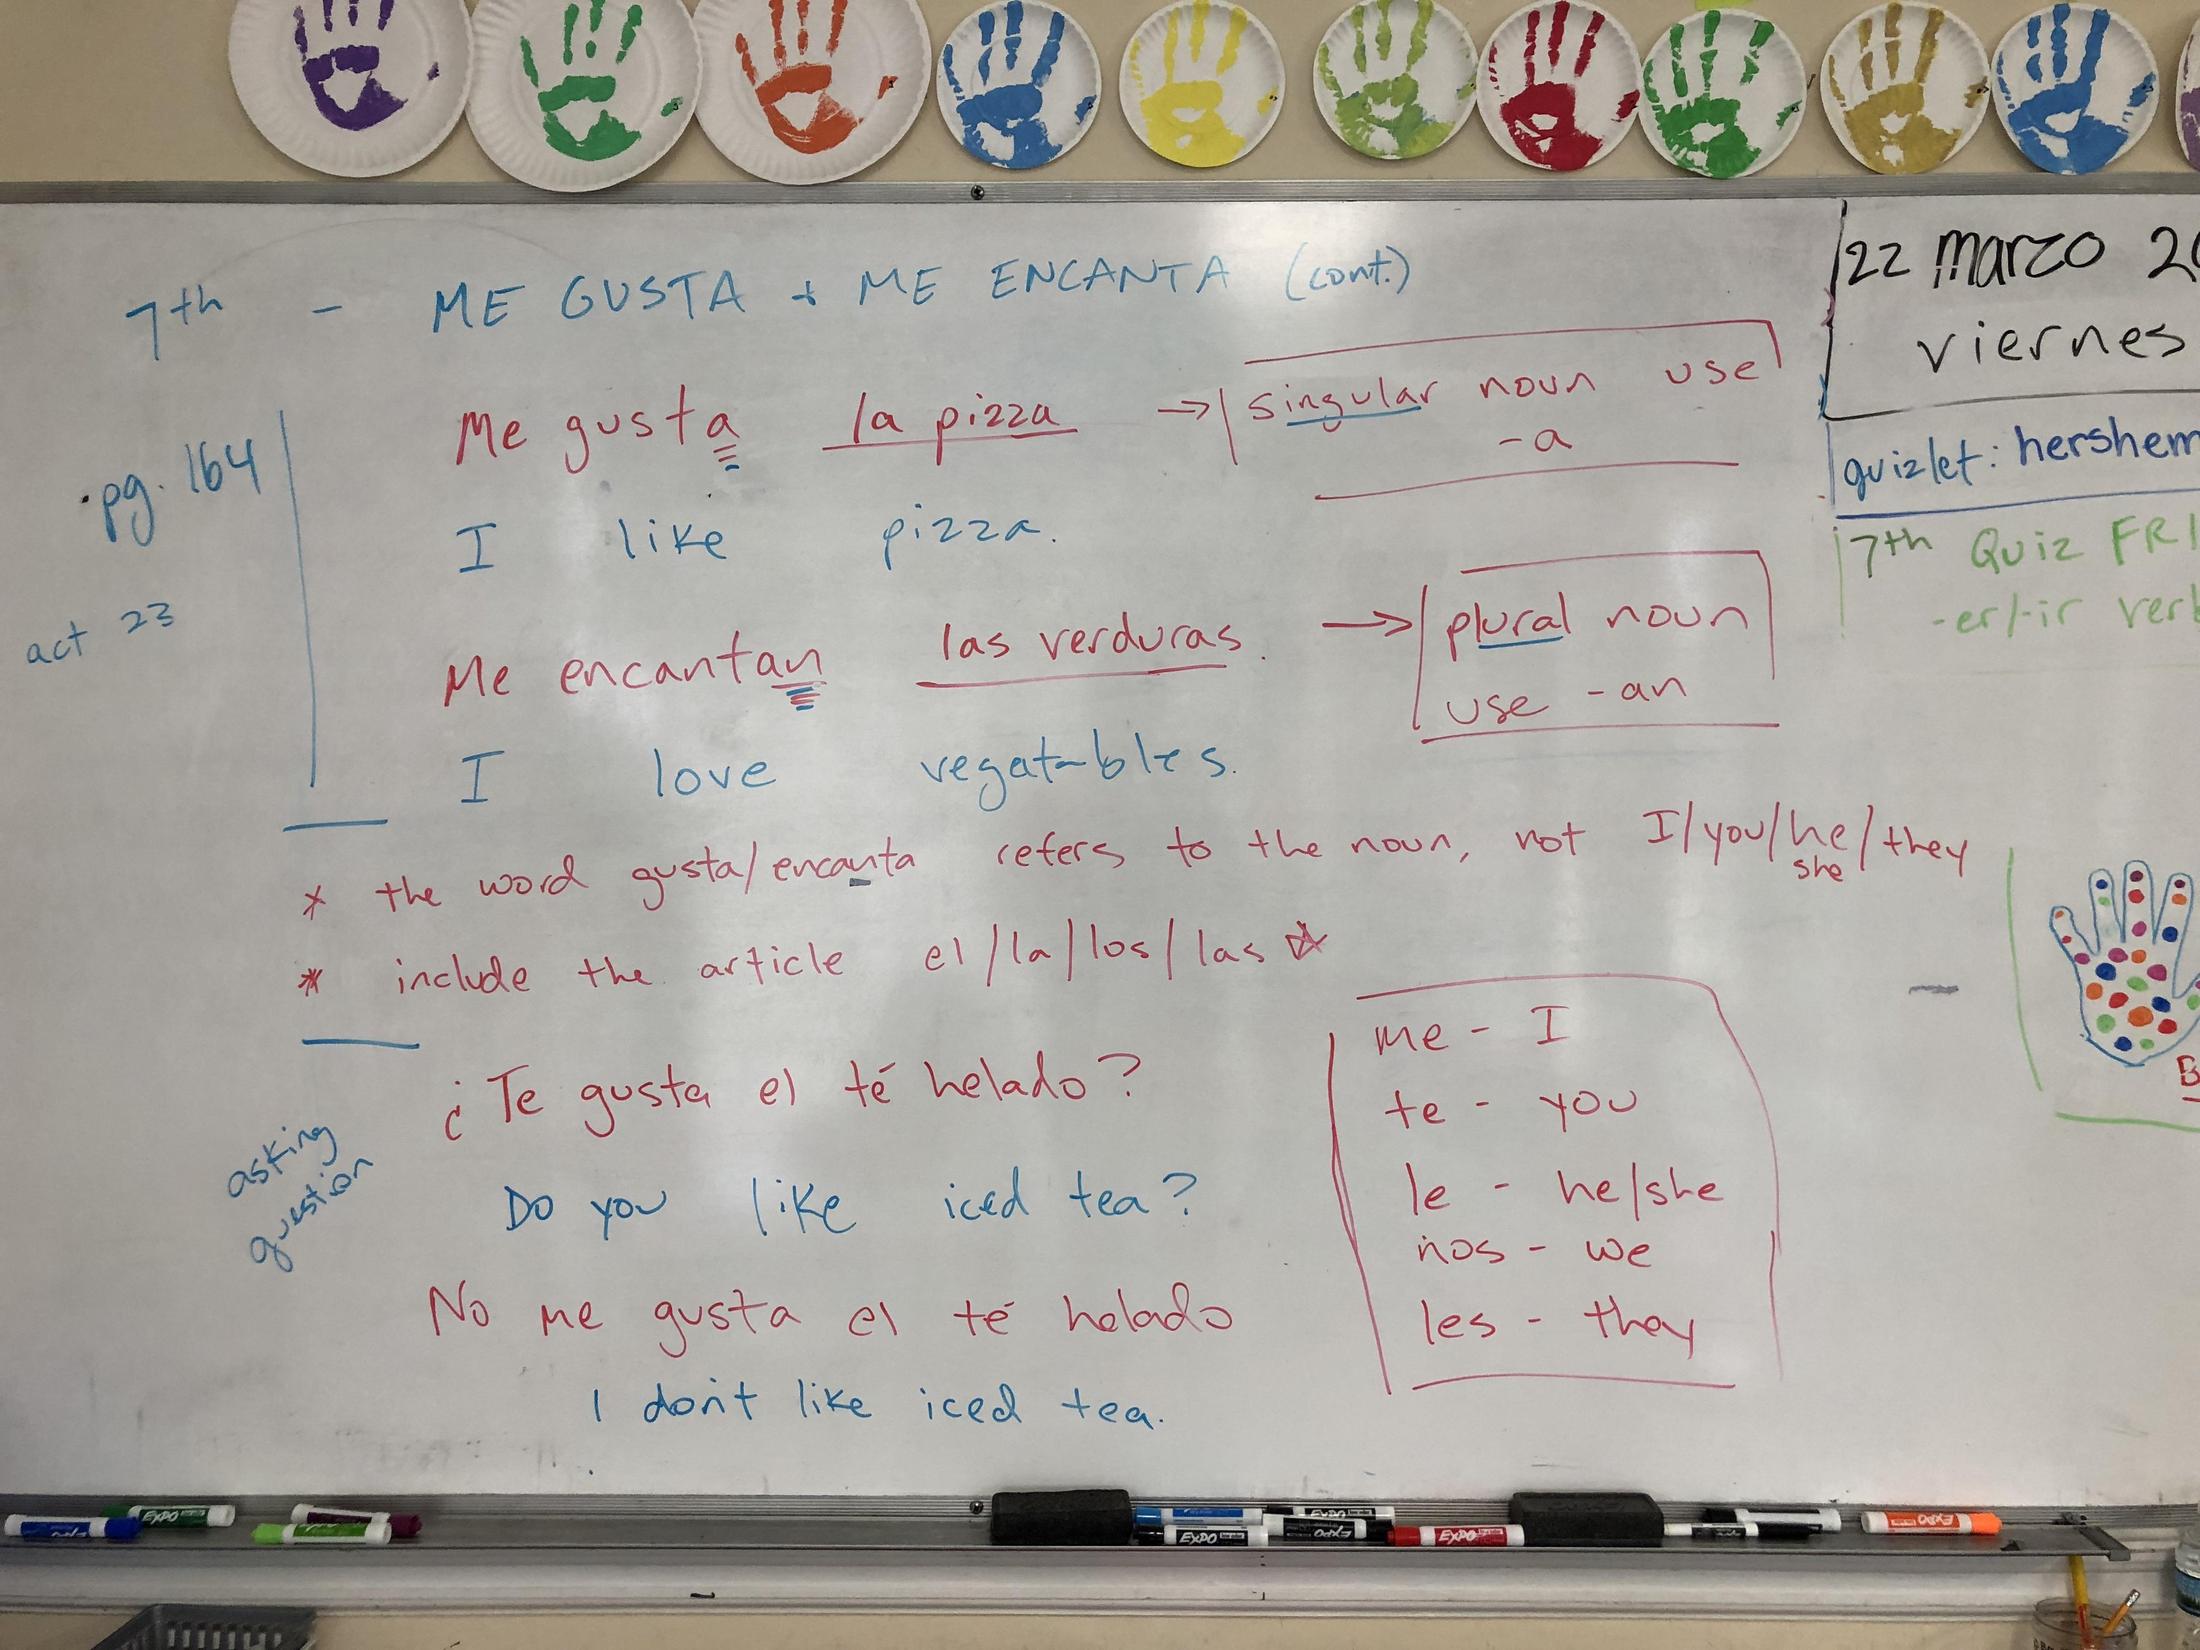 7th - ME GUSTA + ME ENCANTA (cont.)
pg. 164
act 23
Me gusta la pizza → singular noun use
-a
I like pizza.
Me encantan las verduras. → plural noun
use -an
I love vegatables.
* the word gusta/encanta refers to the noun, not I/you/he/they
she
* include the article el/la/los/las ☆
asking
question
¿Te gusta el té helado?
Do you like iced tea?
No me gusta el té helado
I don't like iced tea.
me - I
te - you
le - he/she
nos - we
les - they
22 marzo 20
viernes
quizlet: hershem
7th Quiz FRI
-er/-ir verb
EXPO
EXPO
EXPO
EXPO
EXPO
EXPO